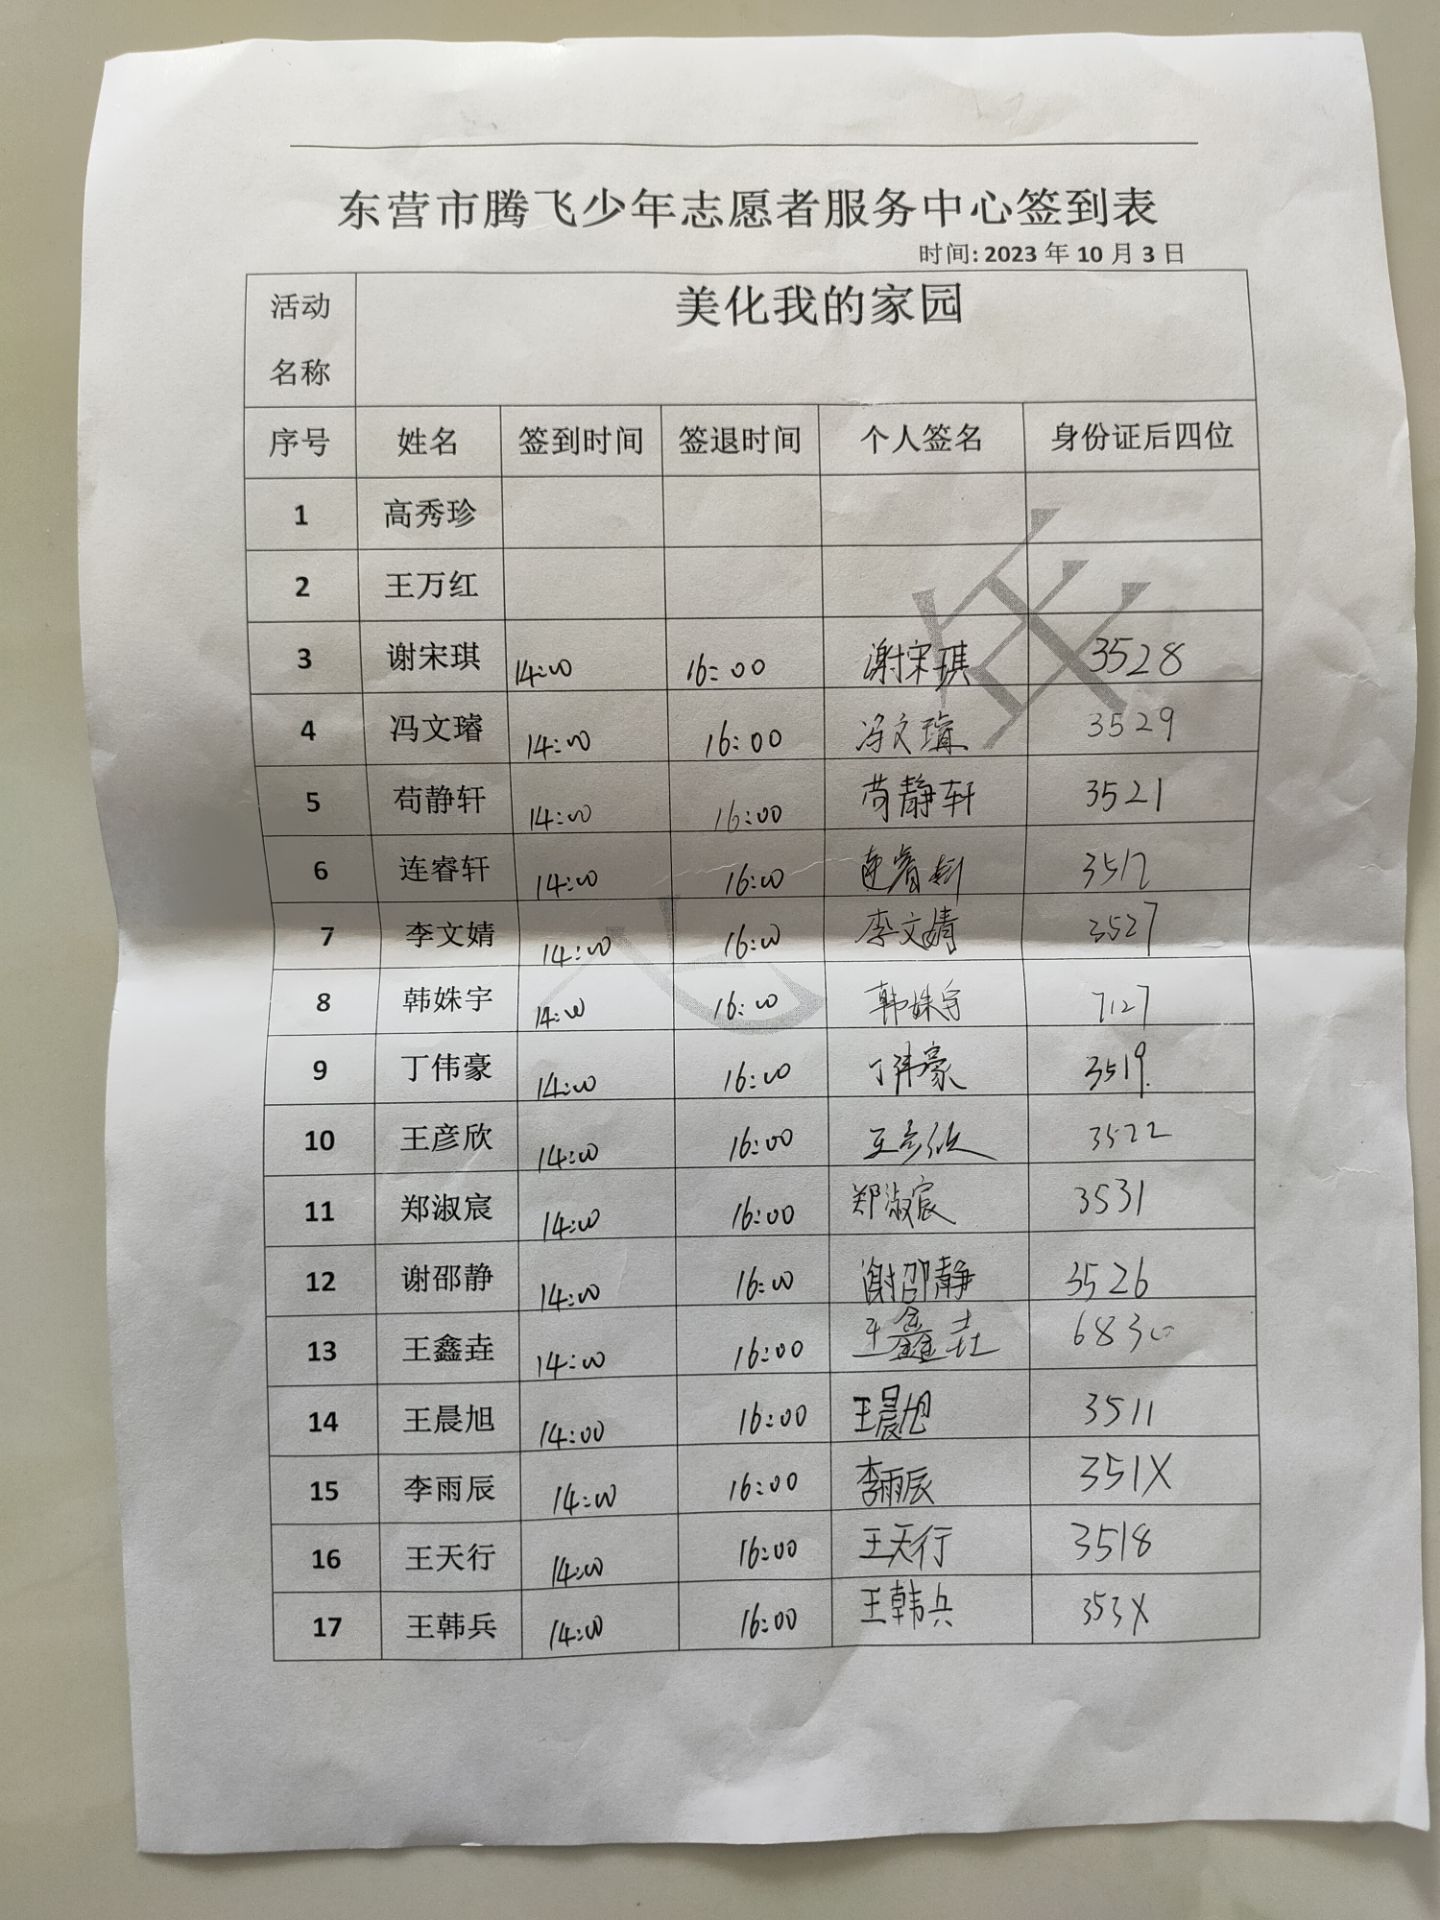 东营市腾飞少年志愿者服务中心签到表
时间: 2023 年 10 月 3 日
活动名称 美化我的家园
序号 姓名 签到时间 签退时间 个人签名 身份证后四位
1 高秀珍
2 王万红
3 谢宋琪 14:00 16:00 谢宋琪 3528
4 冯文璿 14:00 16:00 冯文璿 3529
5 苟静轩 14:00 16:00 苟静轩 3521
6 连睿轩 14:00 16:00 连睿轩 3517
7 李文婧 14:00 16:00 李文婧 3527
8 韩姝宇 14:00 16:00 韩姝宇 7127
9 丁伟豪 14:00 16:00 丁伟豪 3519.
10 王彦欣 14:00 16:00 王彦欣 3522
11 郑淑宸 14:00 16:00 郑淑宸 3531
12 谢邵静 14:00 16:00 谢邵静 3526
13 王鑫垚 14:00 16:00 王鑫垚 6830
14 王晨旭 14:00 16:00 王晨旭 3511
15 李雨辰 14:00 16:00 李雨辰 351X
16 王天行 14:00 16:00 王天行 3518
17 王韩兵 14:00 16:00 王韩兵 353X